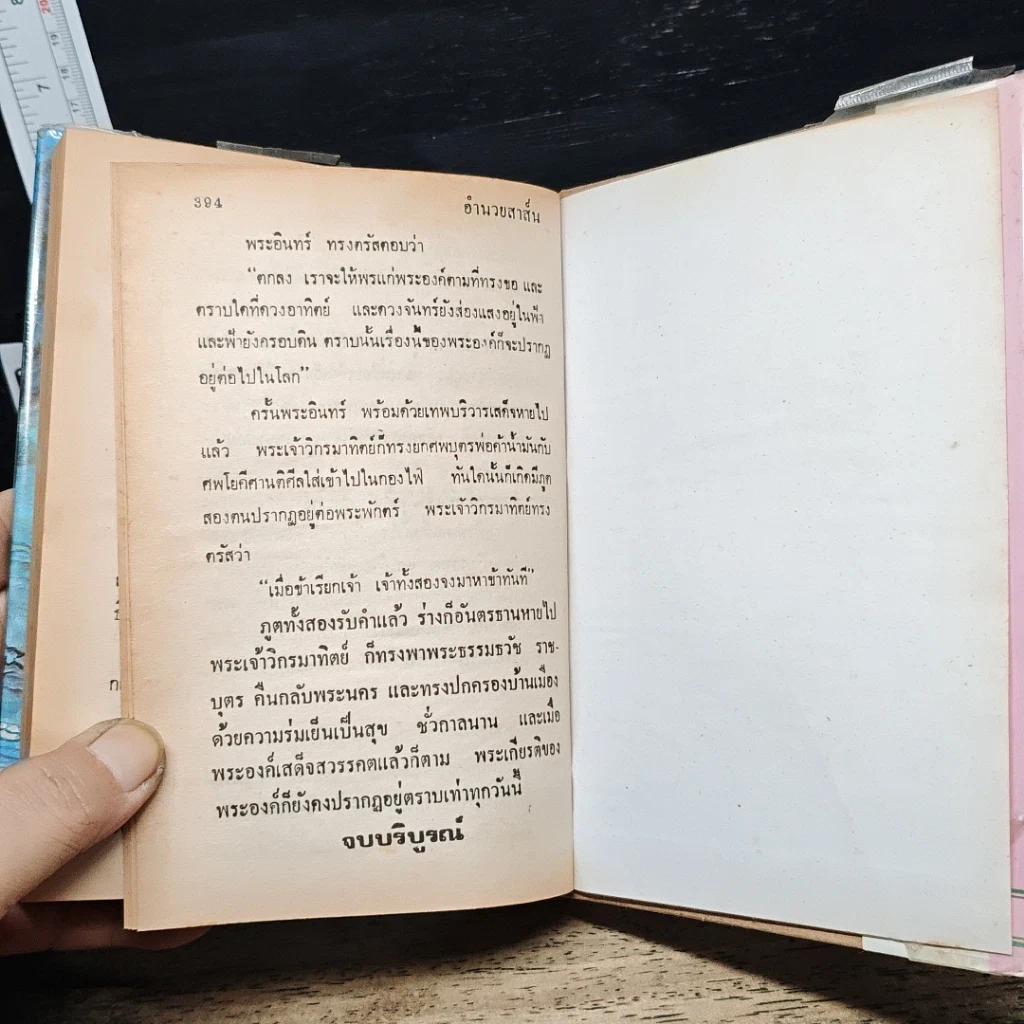 394
อำนวยสาส์น
พระอินทร์ ทรงตรัสตอบว่า
“ตกลง เราจะให้พรแก่พระองค์ตามที่ทรงขอ และ
ตราบใดที่ดวงอาทิตย์ และดวงจันทร์ยังส่องแสงอยู่ในฟ้า
และฟ้ายังครอบดิน ตราบนั้นเรื่องนี้ของพระองค์ก็จะปรากฏ
อยู่ต่อไปในโลก”
ครั้นพระอินทร์ พร้อมด้วยเทพบริวารเสด็จหายไป
แล้ว พระเจ้าวิกรมาทิตย์ก็ทรงยกศพบุตรพ่อค้าน้ำมันกับ
ศพโยคีศานติศีลใส่เข้าไปในกองไฟ ทันใดนั้นก็เกิดมีภูต
สองตนปรากฏอยู่ต่อพระพักตร์ พระเจ้าวิกรมาทิตย์ทรง
ตรัสว่า
“เมื่อข้าเรียกเจ้า เจ้าทั้งสองจงมาหาข้าทันที”
ภูตทั้งสองรับคำแล้ว ร่างก็อันตรธานหายไป
พระเจ้าวิกรมาทิตย์ ก็ทรงพาพระธรรมธวัช ราช-
บุตร คืนกลับพระนคร และทรงปกครองบ้านเมือง
ด้วยความร่มเย็นเป็นสุข ชั่วกาลนาน และเมื่อ
พระองค์เสด็จสวรรคตแล้วก็ตาม พระเกียรติของ
พระองค์ก็ยังคงปรากฏอยู่ตราบเท่าทุกวันนี้
จบบริบูรณ์